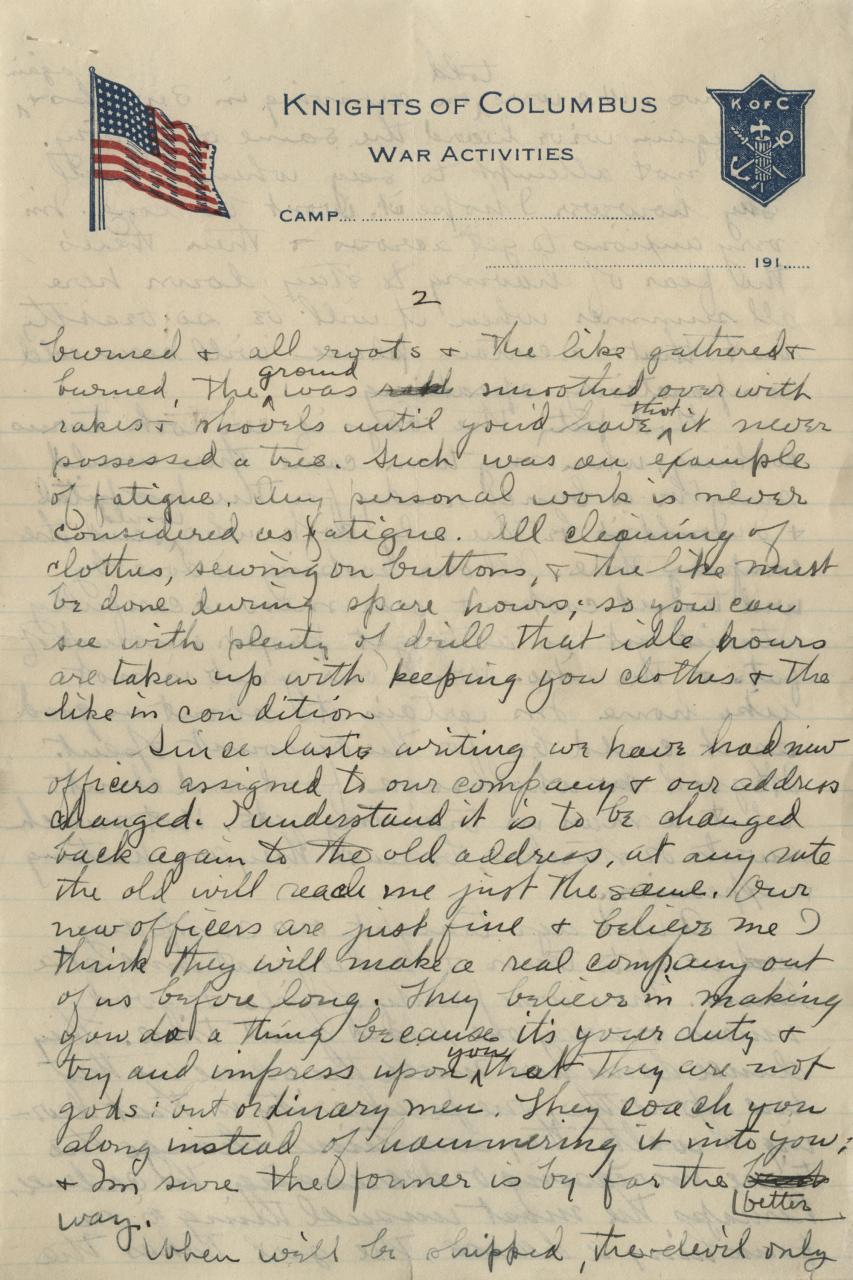 KNIGHTS OF COLUMBUS
WAR ACTIVITIES
K OF C
CAMP
191
2
burned & all roots & the like gathered &
burned, the ground was smoothed over with
rakes & shovels until you'd have that it never
possessed a tree. Such was an example
of fatigue. Any personal work is never
considered as fatigue. All cleaning of
clothes, sewing on buttons, & the like must
be done during spare hours; so you can
see with plenty of drill that idle hours
are taken up with keeping you clothes & the
like in condition
Since last writing we have had new
officers assigned to our company & our address
changed. I understand it is to be changed
back again to the old address, at any rate
the old will reach me just the same. Our
new officers are just fine & believe me I
think they will make a real company out
of us before long. They believe in making
you do a thing because it's your duty &
try and impress upon you that they are not
gods: but ordinary men. They coach you
along instead of hammering it into you;
& Im sure the former is by far the best better
way.
When we'll be shipped, the devil only